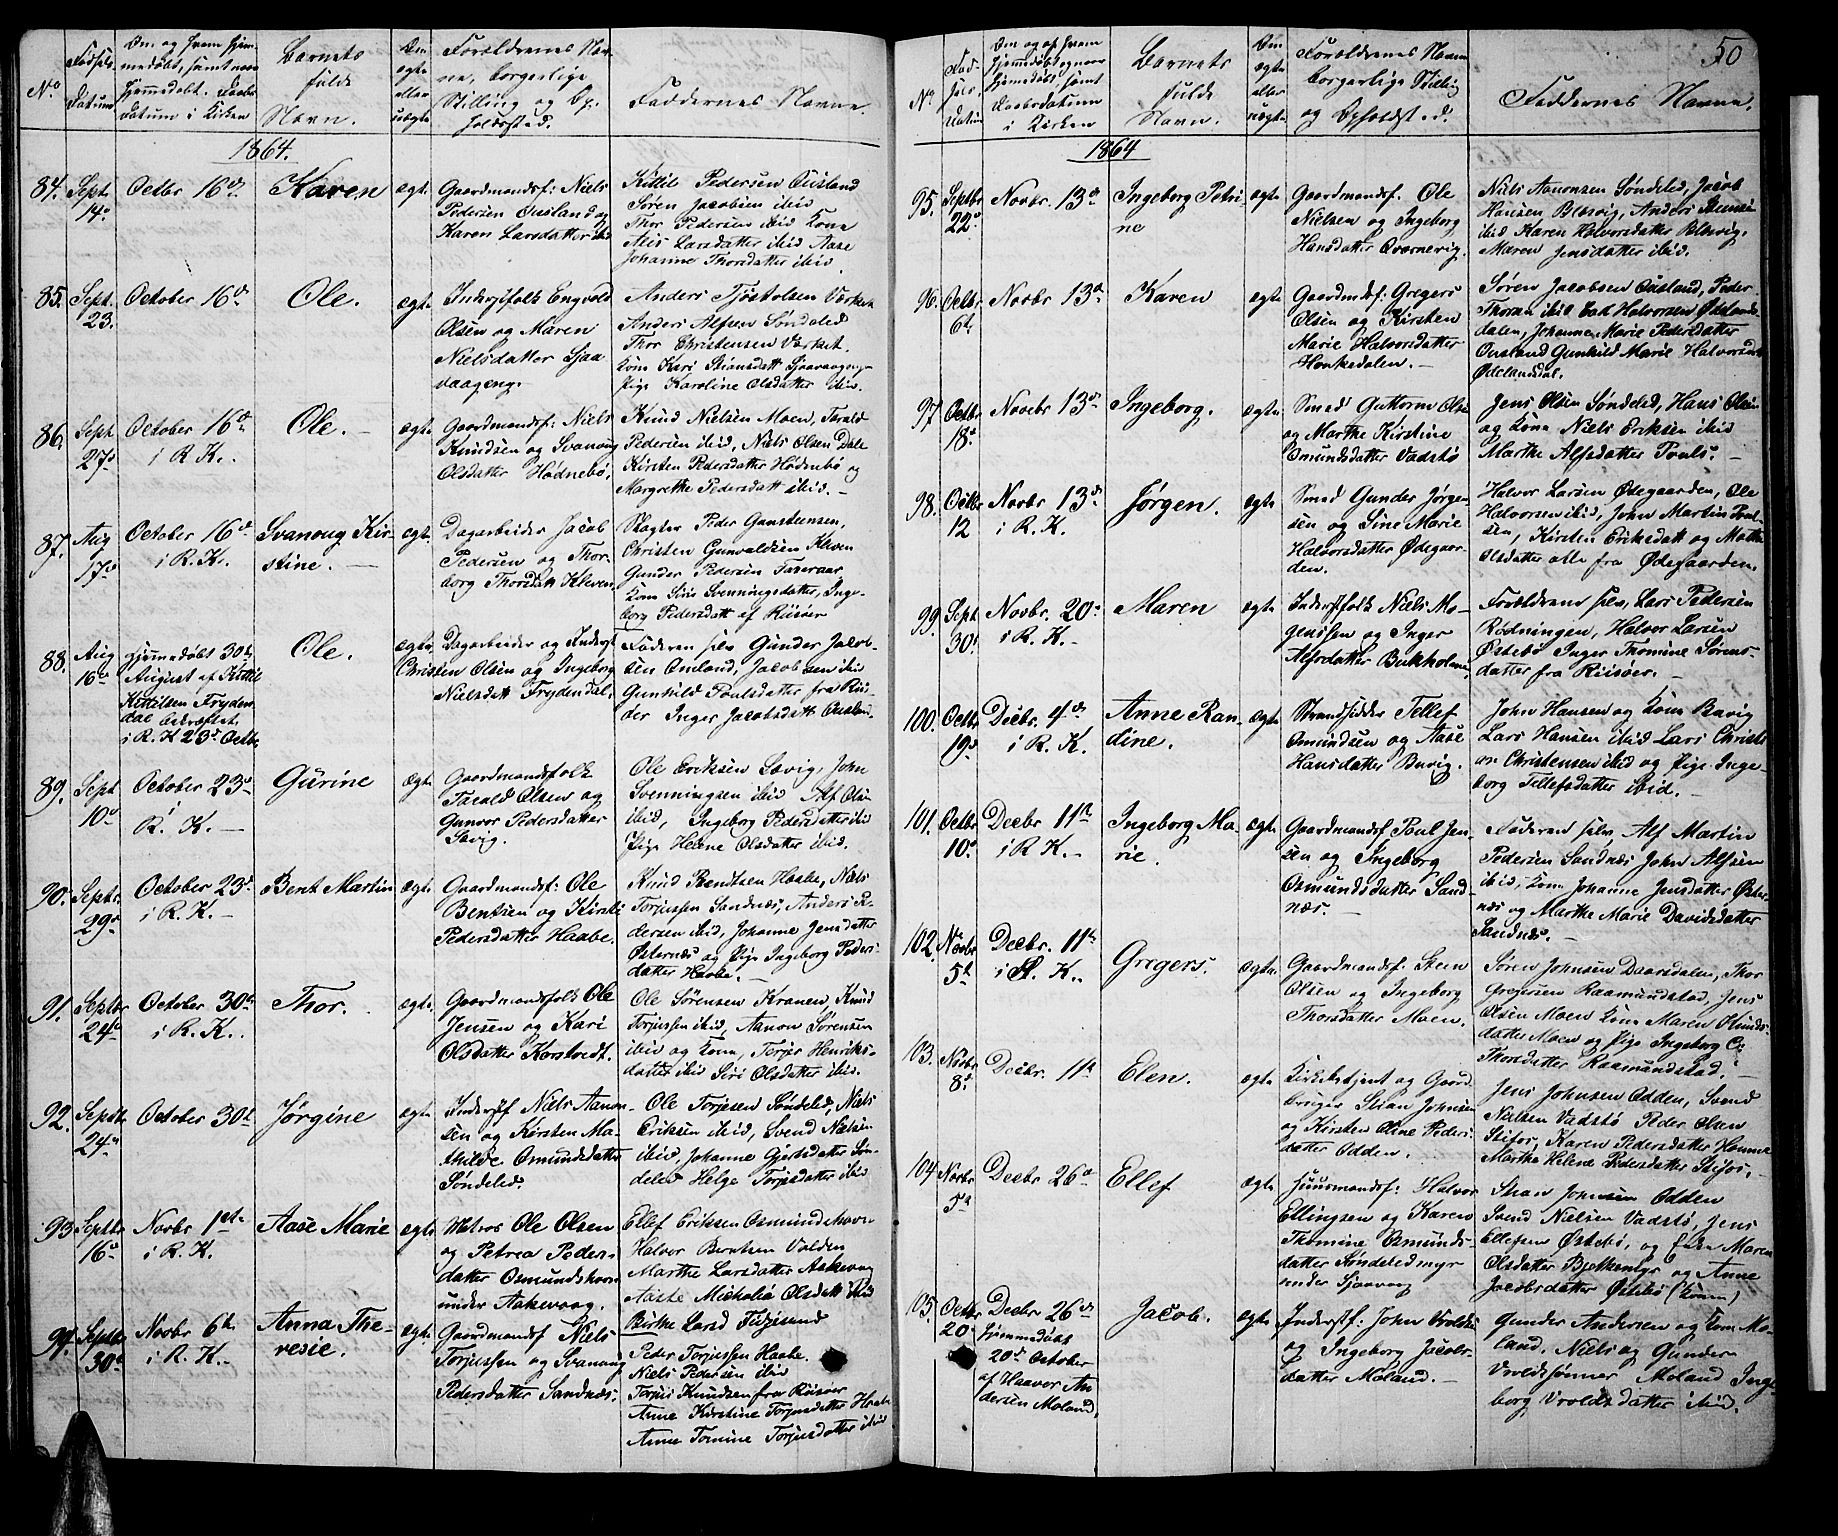 No
Fødsels-
Datum
Om og hvem hjem-
medøbt, samt naar
hjemdøbt. Daabs-
datum i Kirken
Barnets
fulde
Navn.
Om
ægte
eller
uægte
Forældrenes Nav-
ne, borgerlige
Stilling og Op-
holdssted.
Faddernes Navne
1864.
84. Sept 14de
Octbr 16de
Karen
ægte
Gaardmandsf: Niels
Pedersen Ousland og
Karen Larsdatter ibid
Kittil Pedersen Ousland
Søren Jacobsen ibid
Thor Pedersen ibid Kone
Larsdatter ibid Aase
Johanne Thorsdatter ibid.
85. Sept. 23.
October 16de
Ole.
ægte
Inderstfolk Engvold
Olsen og Maren
Nielsdatter Sjaa-
vaageng.
Anders Tjøstolsen Værket
Anders Alfsen Søndeled
Thor Christensen Værket.
Kone Kari Stiansdatt Sjaavaageng
Pige Karoline Olsdatter ibid.
86. Sept 27de
October 16de
i R. K.
Ole.
ægte
Gaardmandsf: Niels
Knudsen og Svanoug
Olsdatter Hødnebø.
Knud Nielsen Moen, Tarald
Pedersen ibid, Niels Olsen Dale
Kirsten Pedersdatt Hødnebø og
Margrethe Pedersdatt ibid.
87. Aug 17de
October 16de
i R. K.
Svanoug Kir-
stine.
ægte.
Dagarbeider Jacob
Pedersen og Thor-
borg Thorsdatt Kleven.
Skogter Peder Gunstensen,
Christen Gunvaldsen Kleven
Gunder Pedersen
Kone Siri Svenningsdatter, Inge-
borg Pedersdatt af Riisøer
88. Aug 16de
Hjemmedøbt 30te
August af Kittil
Kittilsen Fryden-
dal bekræftet
i R. K 23de Octbr.
Ole.
ægte
Dagarbeider og Inderst
Christen Olsen og Ingeborg
Nielsdatt Frydendal.
Faderen selv Gunder Jacob-
sen Ousland, Jacobsen ibid
Gunhild Poulsdatter fra Rii-
søer Inger Jacobsdatt Ousland.
89. Sept 10de
October 23de
R. K.
Gurine
ægte
Gaardmandsfolk
Tarald Olsen og
Gunvor Pedersdatter
Lavig.
Ole Eriksen Lavig, John
Svenningsen ibid Alf Olsen
ibid, Ingeborg Pedersdatter ibid
Pige Helene Olsdatter ibid.
90. Septr. 29de
October 23de
i R. K.
Bent Martin
ægte
Gaardmandsf: Ole
Bentsen og Kirsti
Pedersdatter Haabe.
Knud Bentsen Haabe, Niels
Torjussen Sandnæs, Anders Pe-
dersen ibid, Johanne Jensdatter
Østernæs og Pige Ingeborg Peders-
datter Haabe.
91. Septbr 24de
October 30te
i R. K.
Thor.
ægte.
Gaardmandsfolk Ole
Jensen og Kari
Olsdatter Korstvedt.
Ole Sørensen Kranen, Knud
Torjussen ibid, Aanon Sørensen
ibid og Kone, Torjer Henriks-
datter ibid Siri Olsdatter ibid.
92. Septbr 24de
October 30te
Jørgine
ægte
Inderstf Niels Aanon-
sen og Kirsten Ma-
thilde Osmundsdatter
Søndeled.
Ole Torjesen Søndeled, Niels
Eriksen ibid, Svend Nielsen
ibid, Johanne Gjertsdatter Søn-
deled Helge Torjusdatter ibid
93 Septbr 16de
Novbr 1ste
i R. K.
Aase Marie
ægte
Matros Ole Olsen
og Petrea Peders-
datter Osmundshavn
under Aakevaag.
Ellef Eriksen Osmundshavn
Halvor Berntsen Volden
Marthe Larsdatter Aakevaag
Aaste Michaelia Olsdatt ibid
94. Septbr 30te
Novbr 6te
i R. K.
Anna The-
resie.
ægte
Gaardmandsf Niels
Torjussen og Svanoug
Pedersdatter Sandnæs.
Peder Torjussen Haabe.
Niels Pedersen ibid
Torjus Knudsen fra Riisøer
Anne Kirstine Torjusdatter Haabe
Anne Tomine Torjusdatter ibid
50
No
Fød-
sels
Datum
Om og af hvem
hjemmedøbt og naar
hjemdøbt samt
Daabsdatum
i Kirken
Barnets
fulde
Navn.
Om
ægte
eller
uægte.
Forældrenes Navne
borgerlige Stilling
og Opholdsted.
Faddernes Navne.
1864
95. Septbr 22de
Novbr. 13de
Ingeborg Petri-
ne
ægte
Gaardmandsf. Ole
Nielsen og Ingeborg
Hansdatter Qværnevig.
Niels Aanonsen Søndeled, Jacob
Hansen Blesvig, Anders
ibid Karen Halvorsdatter Blesvig.
Maren Jensdatter ibid.
96. Octbr 6te
Novbr 13de
Karen
ægte
Gaardmdsf: Gregers
Olsen og Kirsten
Marie Halvorsdatter
Henkedalen.
Søren Jacobsen Ousland, Peder
Thoran ibid Halvorsen Ødelands-
dalen, Johanne Marie Pedersdatter
Ousland Gunhild Marie Halvorsd
Ødelandsdal.
97 Octbr 18de
Novbr 13de
Ingeborg.
ægte
Smed Guttorm Olsen
og Marthe Kirstine
Osmundsdatter Vadstø
Jens Olsen Søndeled, Hans Olsen
og Kone Niels Eriksen ibid
Marthe Alfsdatter
98. Octbr 12
Novbr. 13de
i R. K.
Jørgen.
ægte
Smed Gunder Jørgen-
sen og Sine Marie
Halvorsdatter Ødegaar-
den.
Halvor Larsen Ødegaarden, Ole
Halvorsen ibid, John Martin Poul-
sen, Kirsten Eriksdatt og Marthe
Olsdatter alle fra Ødegaarden.
99. Sept 30te
Novbr. 20de
i R. K.
Maren
ægte
Inderstfolk Niels Mo-
gensen og Inger
Alfsdatter Buxholmen.
Forældrene selv, Lars Pedersen
Rødningen, Halvor Larsen
Østebø Inger Thomine Sørens-
datter fra Riisøer.
100. Octbr 19de
Decbr. 4de
i R. K.
Anne Ran-
dine.
ægte.
Strandsidder Tellef
Osmundsen og Aase
Hansdatter Buvig.
John Hansen og Kone Buvig
Lars Hansen ibid Lars Christi-
an Christensen ibid og Pige Inge-
borg Tellefsdatter ibid.
101. Octbr 10de
Decbr 11te
i R K.
Ingeborg Ma-
rie.
ægte.
Gaardmandsf Poul Jen-
sen og Ingeborg
Osmundsdatter Sand-
næs.
Faderen selv, Alf Martin
Pedersen Sandnæs John Alfsen
ibid, Kone Johanne Jensdatter Øster-
næs og Marthe Marie Davidsdatter
Sandnæs.
102. Novbr 5te
Decbr. 11te
i S. K.
Gregers.
ægte.
Gaardmandsf: Steen
Olsen og Ingeborg
Thorsdatter Moen.
Søren Johnsen Daarsdalen, Thor
Gregersen Raamundstad, Jens
Olsen Moen Kone Maren Knuds-
datter Moen og Pige Ingeborg
Thorsdatter Raamundstad.
103. Novbr 8de
Decbr. 11te
Elen.
ægte
Kirketjent og Gaard-
bruger Stian Johnsen
og Kirsten Oline Peders-
datter Odden.
Jens Johnsen Odden, Svend
Nielsen Vadstø Peder Olsen
Stifos, Karen Pedersdatter Homme
Marthe Helene Pedersdatter Stifos.
104 Novbr 5te
Decbr 26de
Ellef
ægte
Huusmandsf: Halvor
Ellingsen og Karen
Thomine Osmunds-
datter Søndeledmyr
under Sjaavaag
Stian Johnsen Odden
Svend Nielsen Vadstø, Jens
Ellefsen Østebø, og Enke Maren
Olsdatter Bjelkemyr og Anne
Jacobsdatter Østebø (Kone)
105. Octbr 20.
Decbr 26de
Hjemmedøbt
20de October
af Haavor An-
dersen Moland,
Jacob.
ægte.
Inderstf: John Vroldsen
og Ingeborg Jacobs-
datter Moland.
Gunder Andersen og Kone Mo-
land. Niels og Gunder
Vroldssønner Moland Inge
borg Vroldsdatter ibid.